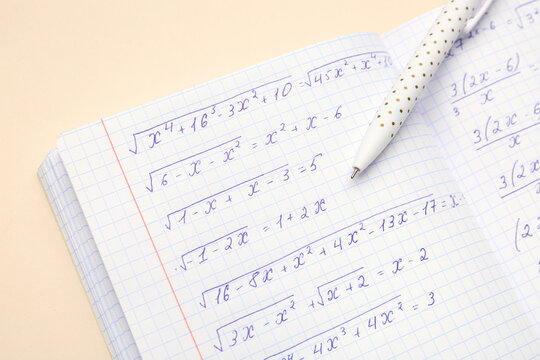 √(x⁴ + 16³ - 3x² + 10) = √(45x² + x⁴ + 10
√(6 - x - x²) = x² + x - 6
√(1 - x + x - 3) = 5
√(-1 - 2x) = 1 + 2x
√(16 - 8x + x² + 4x² - 13x - 17) = x
√(3x - x²) + √(x + 2) = x - 2
- 4x³ + 4x² = 3
2x-6 = √3²
3(2x - 6) =
3 x
3(2x - 6
x
3(2x
x
(2